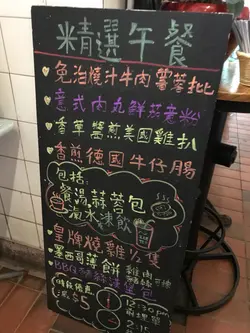 精選午餐
免治燒汁牛肉薯蓉批
意式肉丸鮮茄意粉
香草醬煎美國雞扒
香煎德國牛仔腸
包括:
餐湯蒜蓉包
滷水凍飲
皇牌燒雞½隻
墨西哥薄餅
BBQ 包
時段優惠
減$5